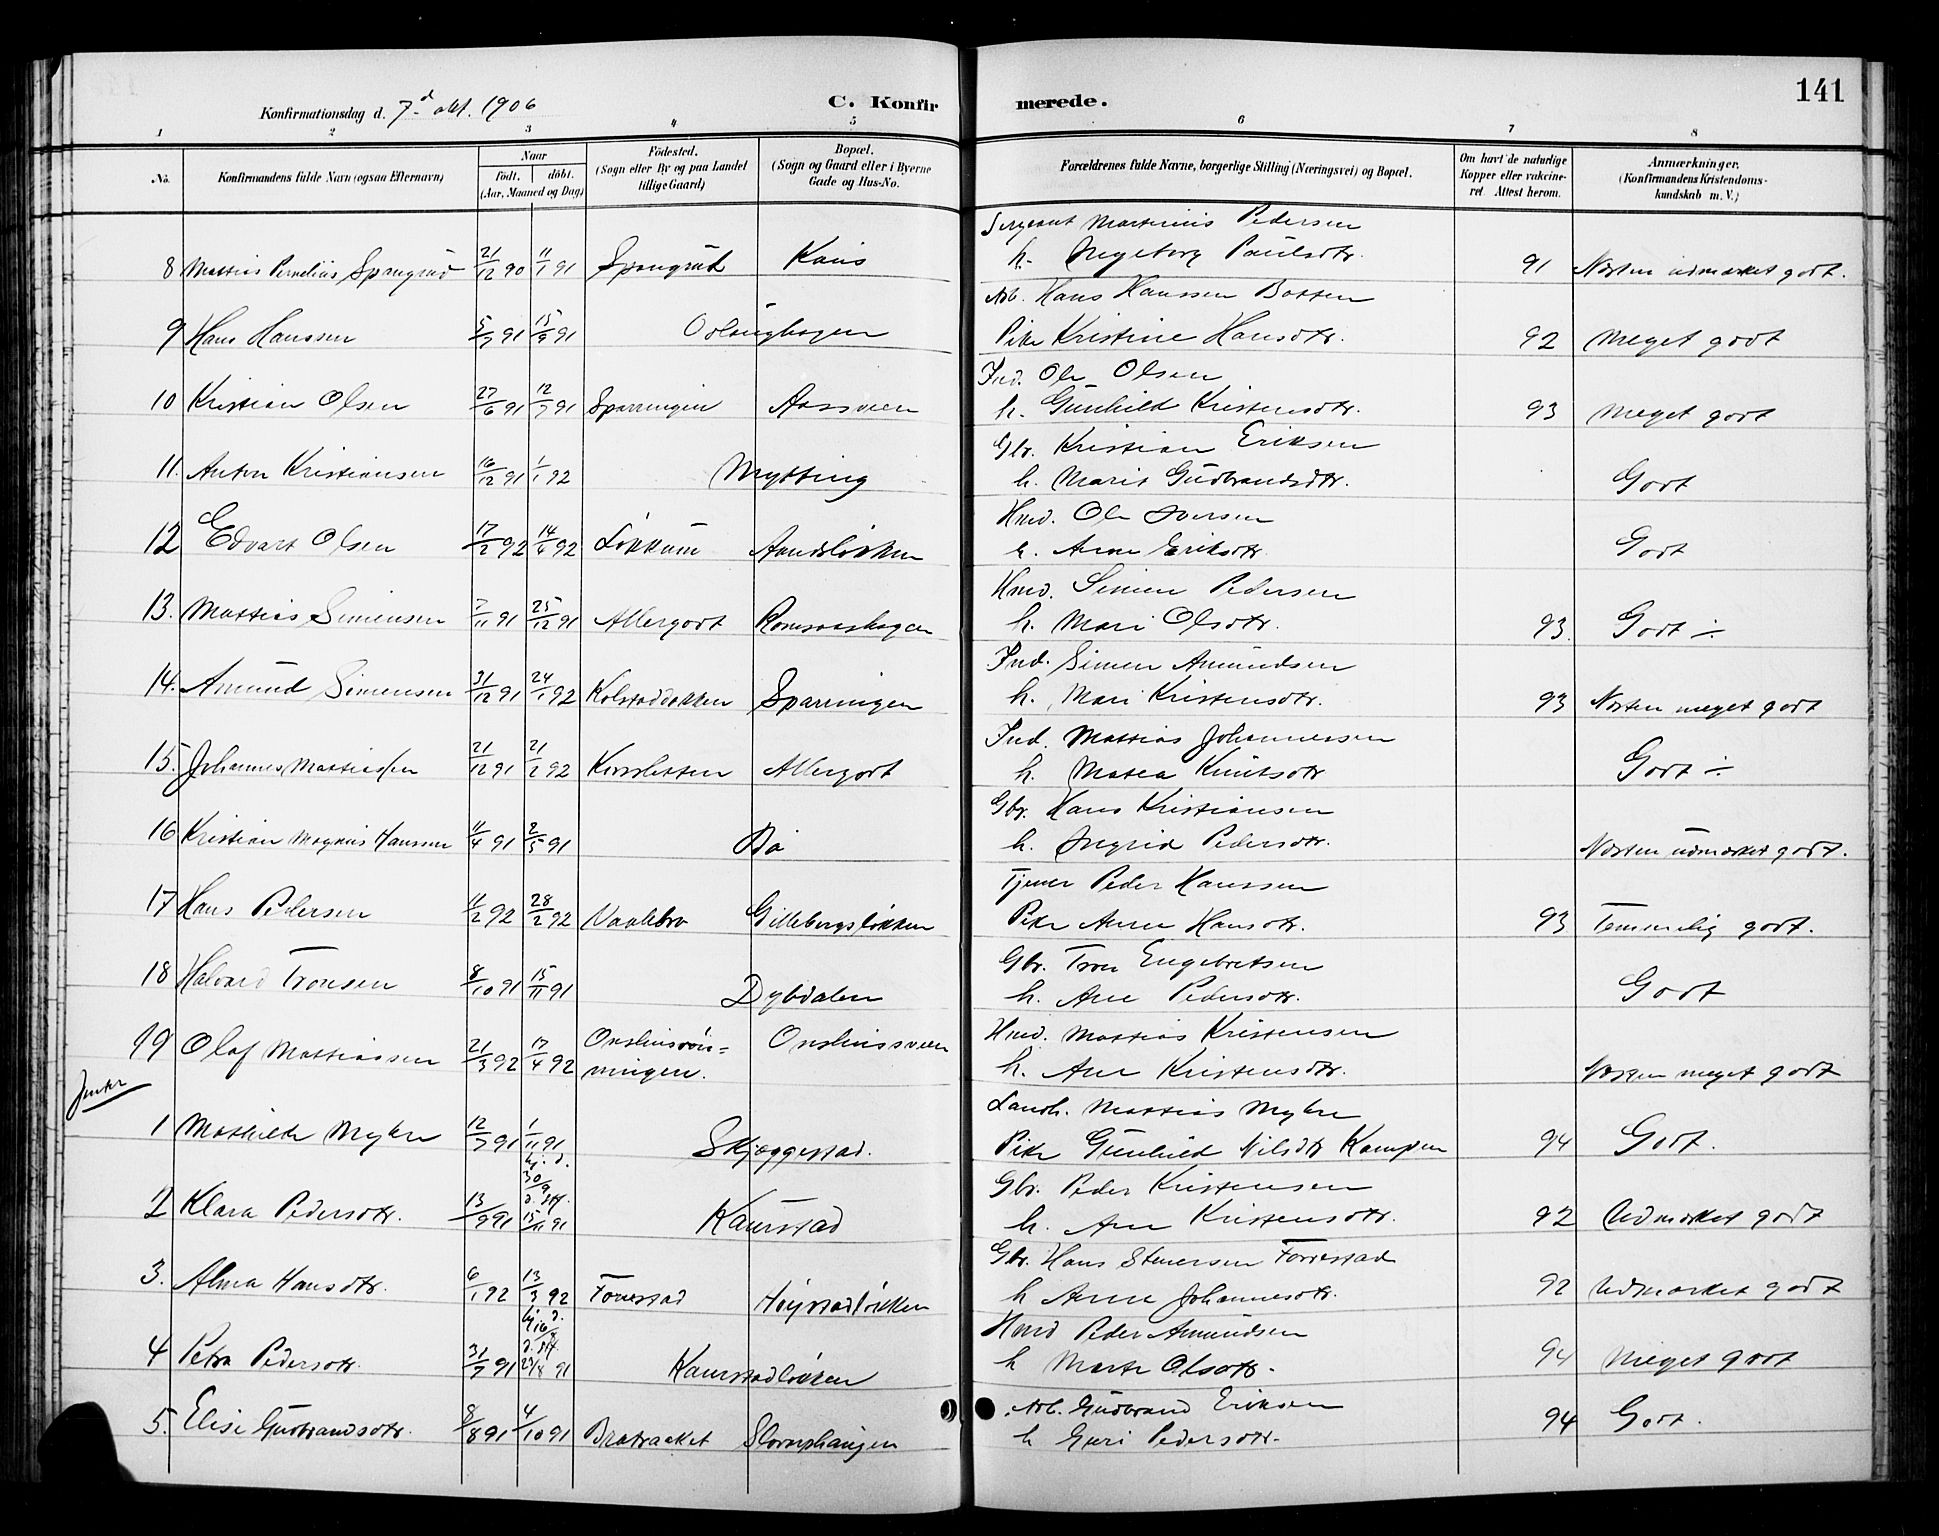 141
Konfirmationsdag d. 7d okt. 1906 C. Konfirmerede.
1 2 3 4 5 6 7 8
No. Konfirmandens fulde Navn (ogsaa Efternavn) Naar födt. döbt. (Aar, Maaned og Dag) Födested. (Sogn eller By og paa Landet tillige Gaard) Bopæl. (Sogn og Gaard eller i Byerne Gade og Hus-No. Forældrenes fulde Navne, borgerlige Stilling (Næringsvei) og Bopæl. Om havt de naturlige Kopper eller vakcineret. Attest herom. Anmærkninger. (Konfirmandens Kristendomskundskab m. V.)
Sergeant Martinius Pedersen
8 Mattias Kornelius Spangrud 21/12 90 11/1 91 Spangrud h. Ingeborg Paulsdtr. 91 Næsten udmærket godt.
Arb. Hans Hanssen Botten
9 Hans Hanssen 5/7 91 15/9 91 Pike Kristine Hansdtr. 92 Meget godt
Ind. Ole Olsen
10 Kristian Olsen 27/6 91 12/7 91 Sparringen Aassveen h. Gunhild Kristensdtr. 93 Meget godt
Gbr. Kristian Eriksen
11. Anton Kristiansen 16/12 91 1/1 92 Mytting h. Marit Gudbrandsdtr. Godt
Hmd. Ole Iversen
12 Edvart Olsen 17/2 92 14/4 92 Løkkum Aandsløkken h. Anne Eriksdtr. Godt
Hmd. Simen Pedersen
13. Mattias Simensen 7/11 91 25/12 91 Allergodt Romsaashagen h. Mari Olsdtr. 93. Godt ÷
Ind. Simen Amundsen
14. Amund Simensen 31/12 91 24/1 92 Kolstadløkken Sparringen h. Mari Kristensdtr. 93 Næsten meget godt
Ind. Mattias Johannessen
15. Johannes Mattiassen 21/12 91 21/2 92 Korsletten Allergodt h. Matea Knutsdtr Godt ÷
Gbr. Hans Kristiansen
16 Kristian Magnus Hanssen 11/4 91 2/5 91 Bø h. Ingrid Pedersdtr. Næsten udmærket godt.
Tjener Peder Hanssen
17 Hans Pedersen 11/2 92 28/2 92 Vaalebro Gillebergsløkken Pike Anne Hansdtr. 93 Temmelig godt.
Gbr. Tron Engebretsen
18 Halvard Tronsen 8/10 91 15/11 91 Dybdalen h. Ane Pedersdtr. Godt
Hmd. Mattias Kristensen
19 Olaf Mattiassen 21/3 92 17/4 92 Onsliensrønningen. Onsliensveen h. Ane Kristensdtr. Næsten meget godt
Jenter
Landh. Mattias Myhre
1 Mathilde Myhre 12/7 91 1/11 91 Skjæggestad. Pike Gunhild Nilsdtr Kampen 94 Godt.
Gbr. Peder Kristensen
2 Klara Pedersdtr. 13/9 91 hj. d. 30/9 d. stf. 15/11 91 Kaurstad h. Ane Kristensdtr. 92 Udmærket godt
Gbr. Hans Stenersen Forrestad
3. Alma Hansdtr. 6/1 92 13/3 92 Forrestad Høystadløkken h Anne Johannesdtr. 92 Udmærket godt
Hmd Peder Amundsen
4 Petra Pedersdtr. 31/7 91 hj. d. 16/8 d. stf. 23/8 91 Kaurstadløkken h Marte Olsdtr. 94 Meget godt
Arb. Gudbrand Eriksen
5. Elise Gudbrandsdtr. 8/8 91 4/10 91 Bratbakket Slorephaugen h Guri Pedersdtr. 94 Godt.